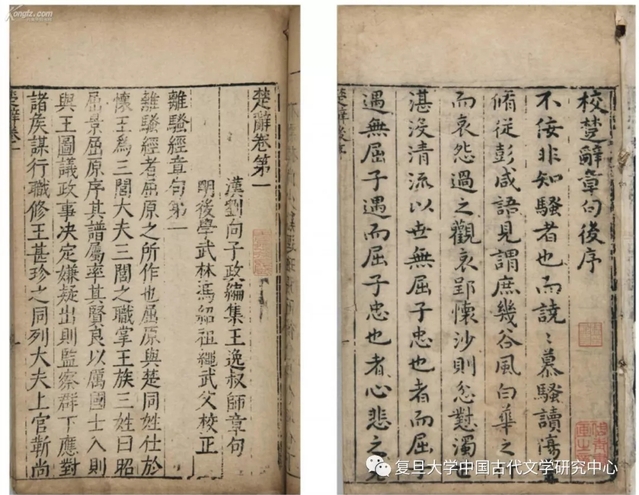 楚辭卷第一
漢劉向子政編集王逸叔師章句
明後學武林馮紹祖繩武父校正
離騷經章句第一
離騷經者屈原之所作也屈原與楚同姓仕於
懷王爲三閭大夫三閭之職掌王族三姓曰昭
屈景屈原序其譜屬率其賢良以厲國士入則
與王圖議政事决定嫌疑出則監察群下應對
諸侯謀行職修王甚珍之同列大夫上官靳尚
楚辭卷一
校楚辭章句後序
不佞非知騷者也而〻慕騷讀
俯從彭咸語見謂庶幾谷風白華之
而哀怨過之觀哀郢懷沙則忿懟濁
湛沒清流以世無屈子忠也者而屈
遇無屈子遇而屈子忠也者心悲之
复旦大学中国古代文学研究中心